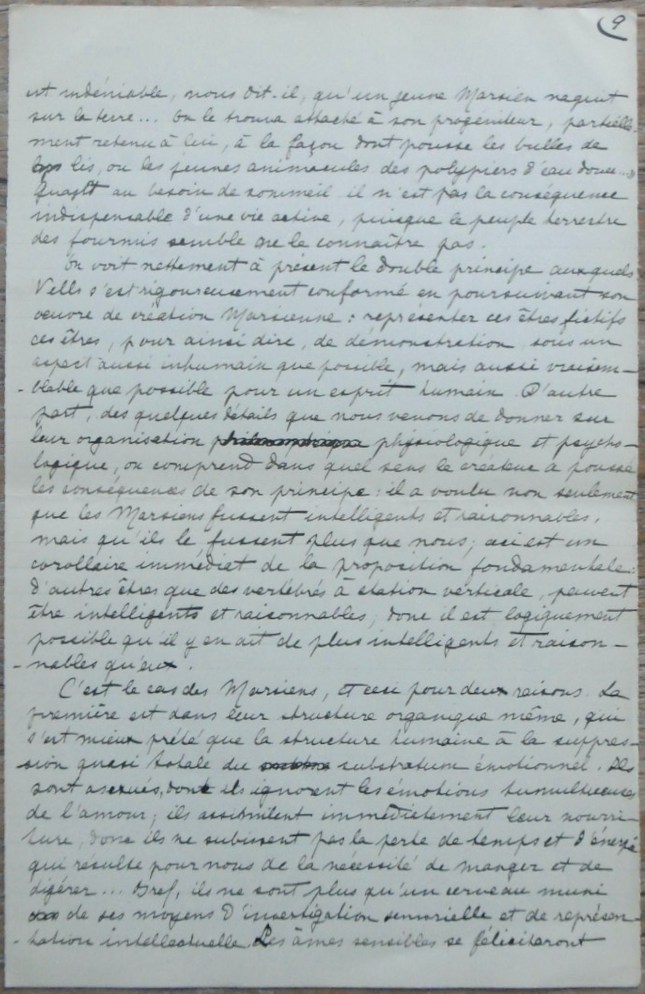 9
est indéniable, nous dit-il, qu'un jeune Marsien naquit
sur la terre... On le trouva attaché à son progéniteur, partielle-
ment retenu à lui, à la façon dont pousse les bulbes de
lis, ou les jeunes animacules des polypiers d'eau douce...»
Quant au besoin de sommeil il n'est pas la conséquence
indispensable d'une vie active, puisque le peuple terrestre
des fourmis semble ne le connaître pas.
On voit nettement à présent le double principe auxquels
Wells s'est rigoureusement conformé en poursuivant son
oeuvre de création Marsienne : représenter ces êtres fictifs
ces êtres, pour ainsi dire, de démonstration sous un
aspect aussi inhumain que possible, mais aussi vraisem-
-blable que possible pour un esprit humain. D'autre
part, des quelques détails que nous venons de donner sur
leur organisation physiologique et psycho-
logique, on comprend dans quel sens le créateur a poussé
les conséquences de son principe : il a voulu non seulement
que les Marsiens fussent intelligents et raisonnables,
mais qu'ils le fussent plus que nous; ceci est un
corollaire immédiat de la proposition fondamentale :
d'autres êtres que des vertébrés à station verticale, peuvent
être intelligents et raisonnables, donc il est logiquement
possible qu'il y en ait de plus intelligents et raison-
-nables qu'eux.
C'est le cas des Marsiens, et ceci pour deux raisons. La
première est dans leur structure organique même, qui
s'est mieux prêté que la structure humaine à la suppres-
-sion quasi totale du substratum émotionnel. Ils
sont asexués, donc ils ignorent les émotions tumultueuses
de l'amour; ils assimilent immédiatement leur nourri-
ture, donc ils ne subissent pas la perte de temps et d'énergie
qui résulte pour nous de la nécessité de manger et de
digérer... Bref, ils ne sont plus qu'un cerveau muni
de ses moyens d'investigation sensorielle et de représen-
-tation intellectuelle. Les âmes sensibles se féliciteront